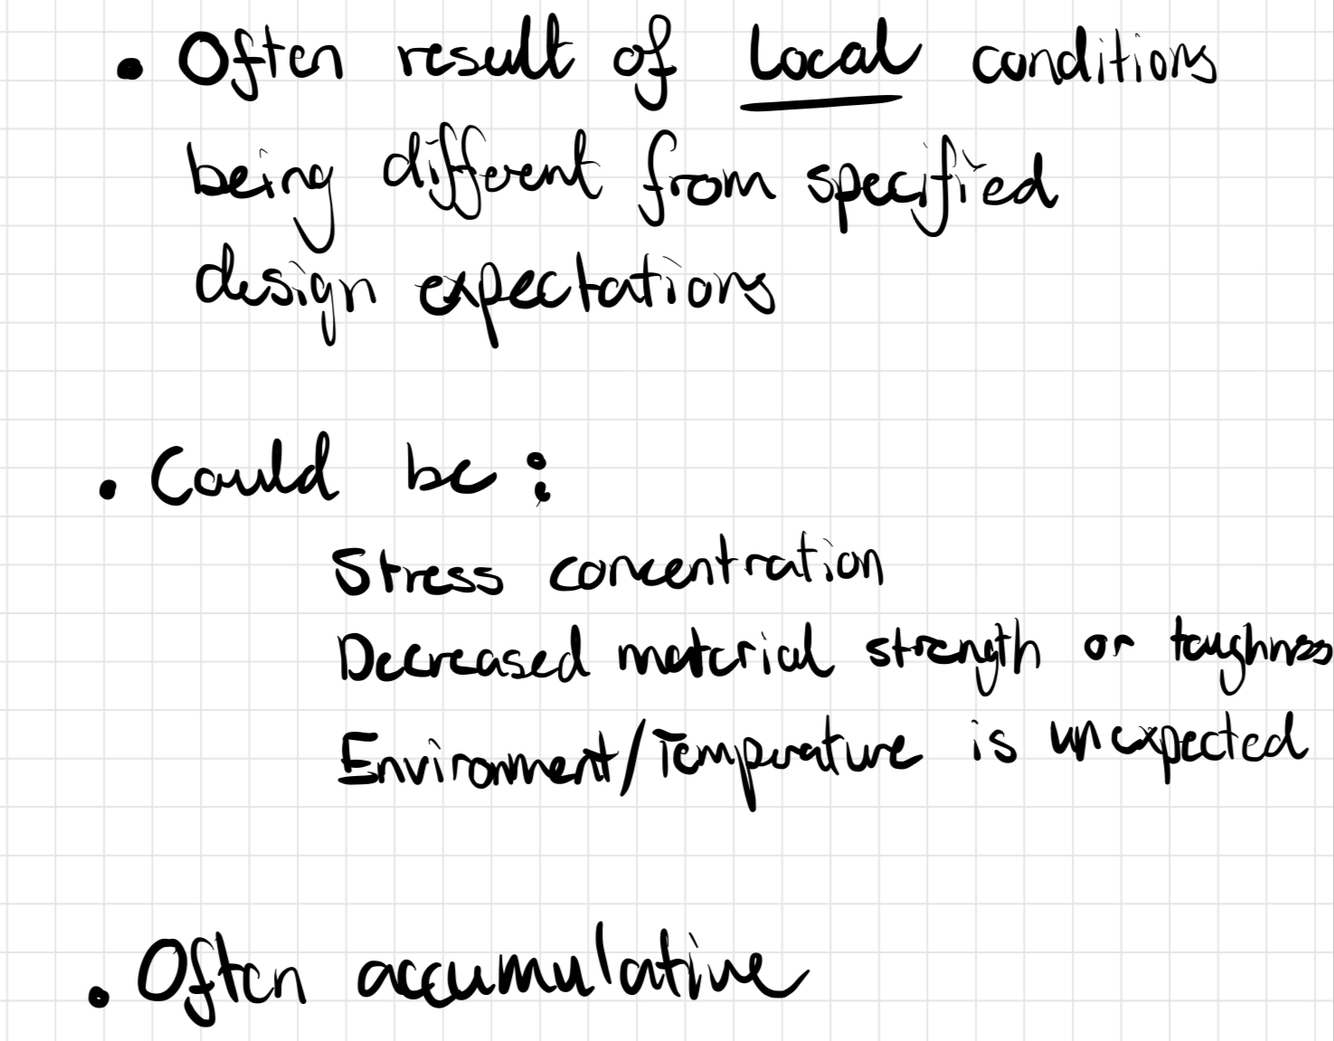 • Often result of local conditions
being different from specified
design expectations
• Could be:
Stress concentration
Decreased material strength or toughness
Environment/Temperature is unexpected
• Often accumulative